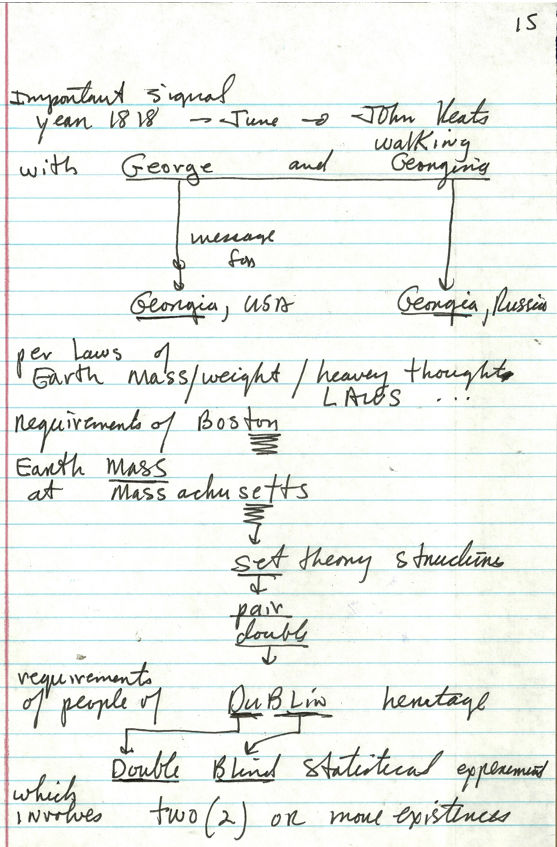 15
Important signal
year 1818 → June → John Keats
walking
with George and Georgina
message
for
Georgia, USA Georgia, Russia
per Laws of
Earth Mass/weight / heavey thoughts
LAWS ...
requirements of Boston
Earth Mass
at Massachusetts
set theory structure
pair
double
requirements
of people of DuBLin heritage
Double Blind statistical experement
which
involves two (2) or more existences